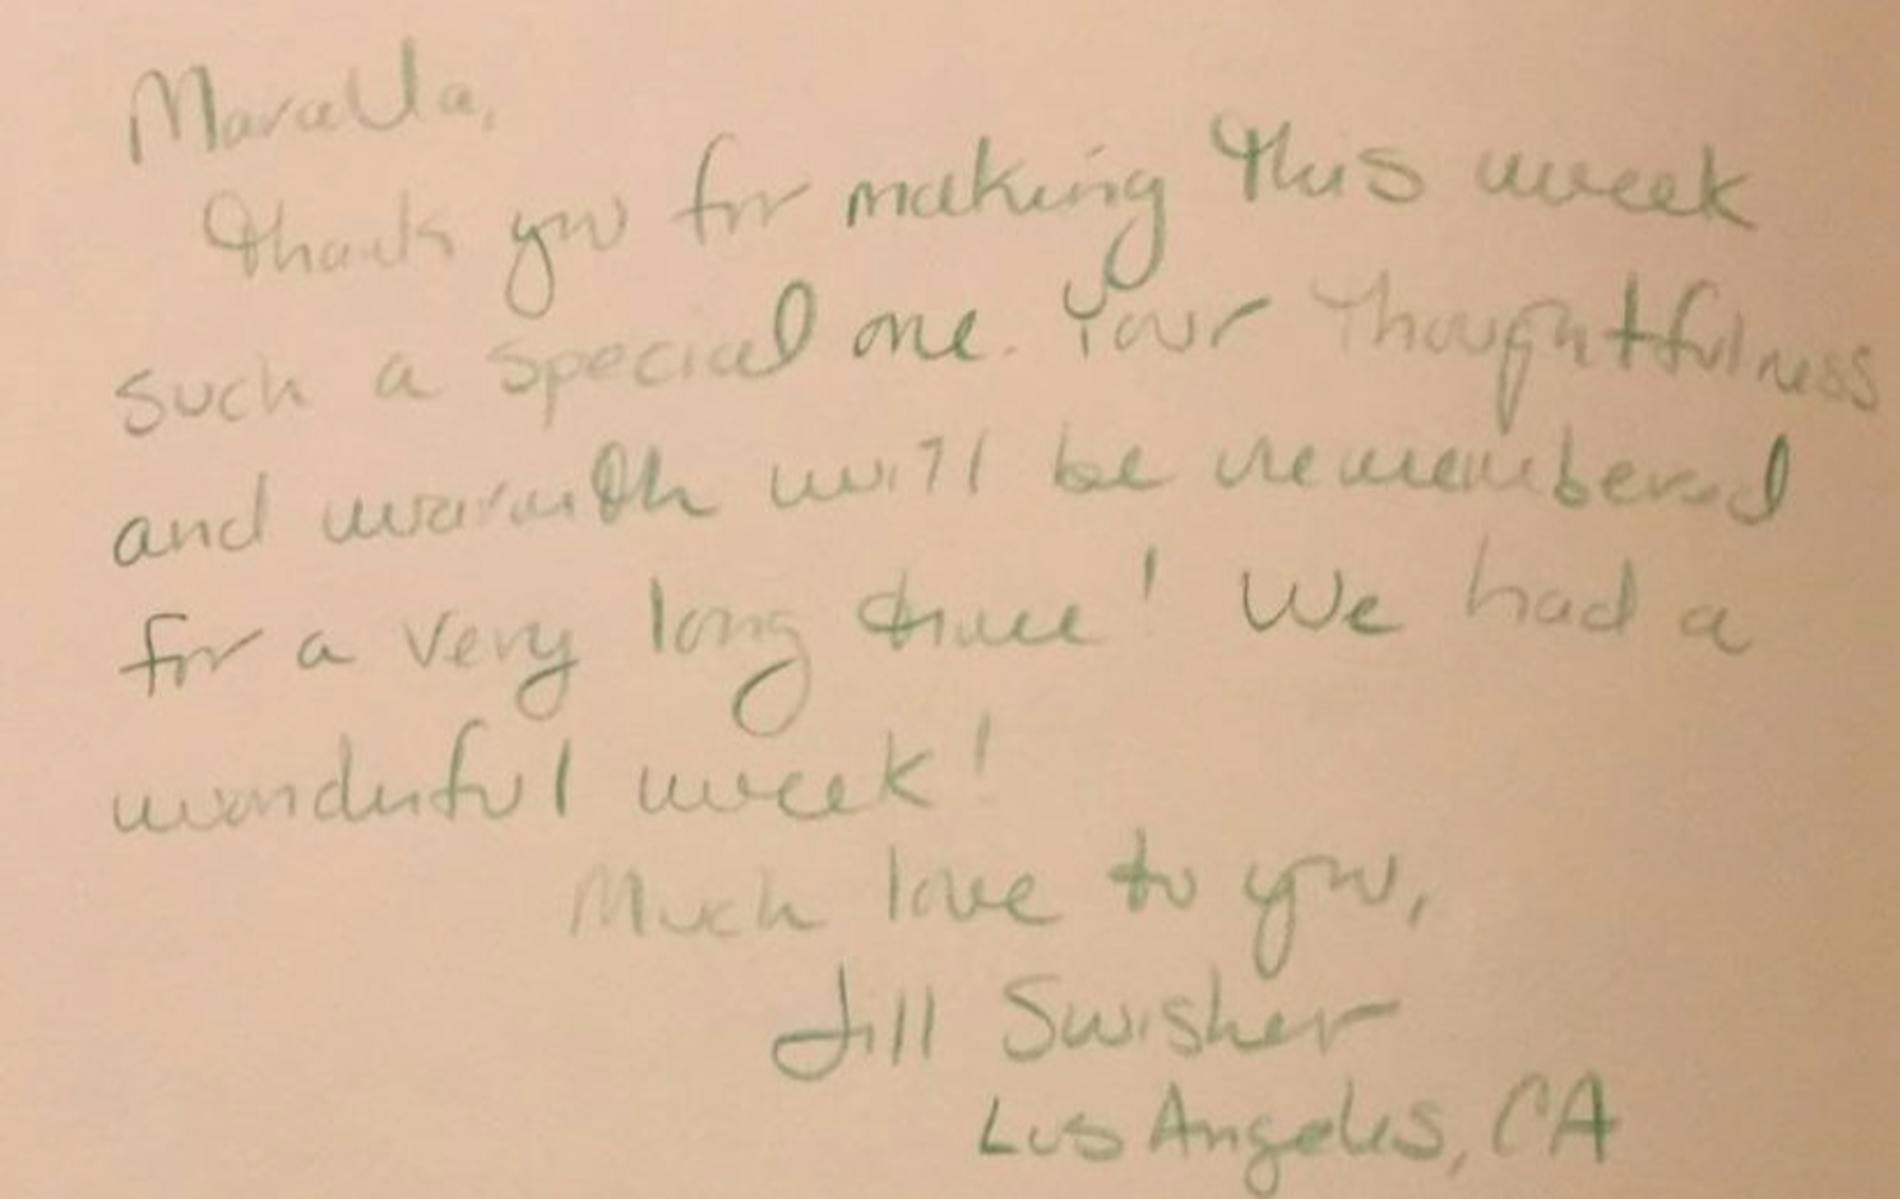 Maralla,
Thank you for making this week
such a special one. Your thoughtfulness
and warmth will be remembered
for a very long time! We had a
wonderful week!
Much love to you,
Jill Swisher
Los Angeles, CA